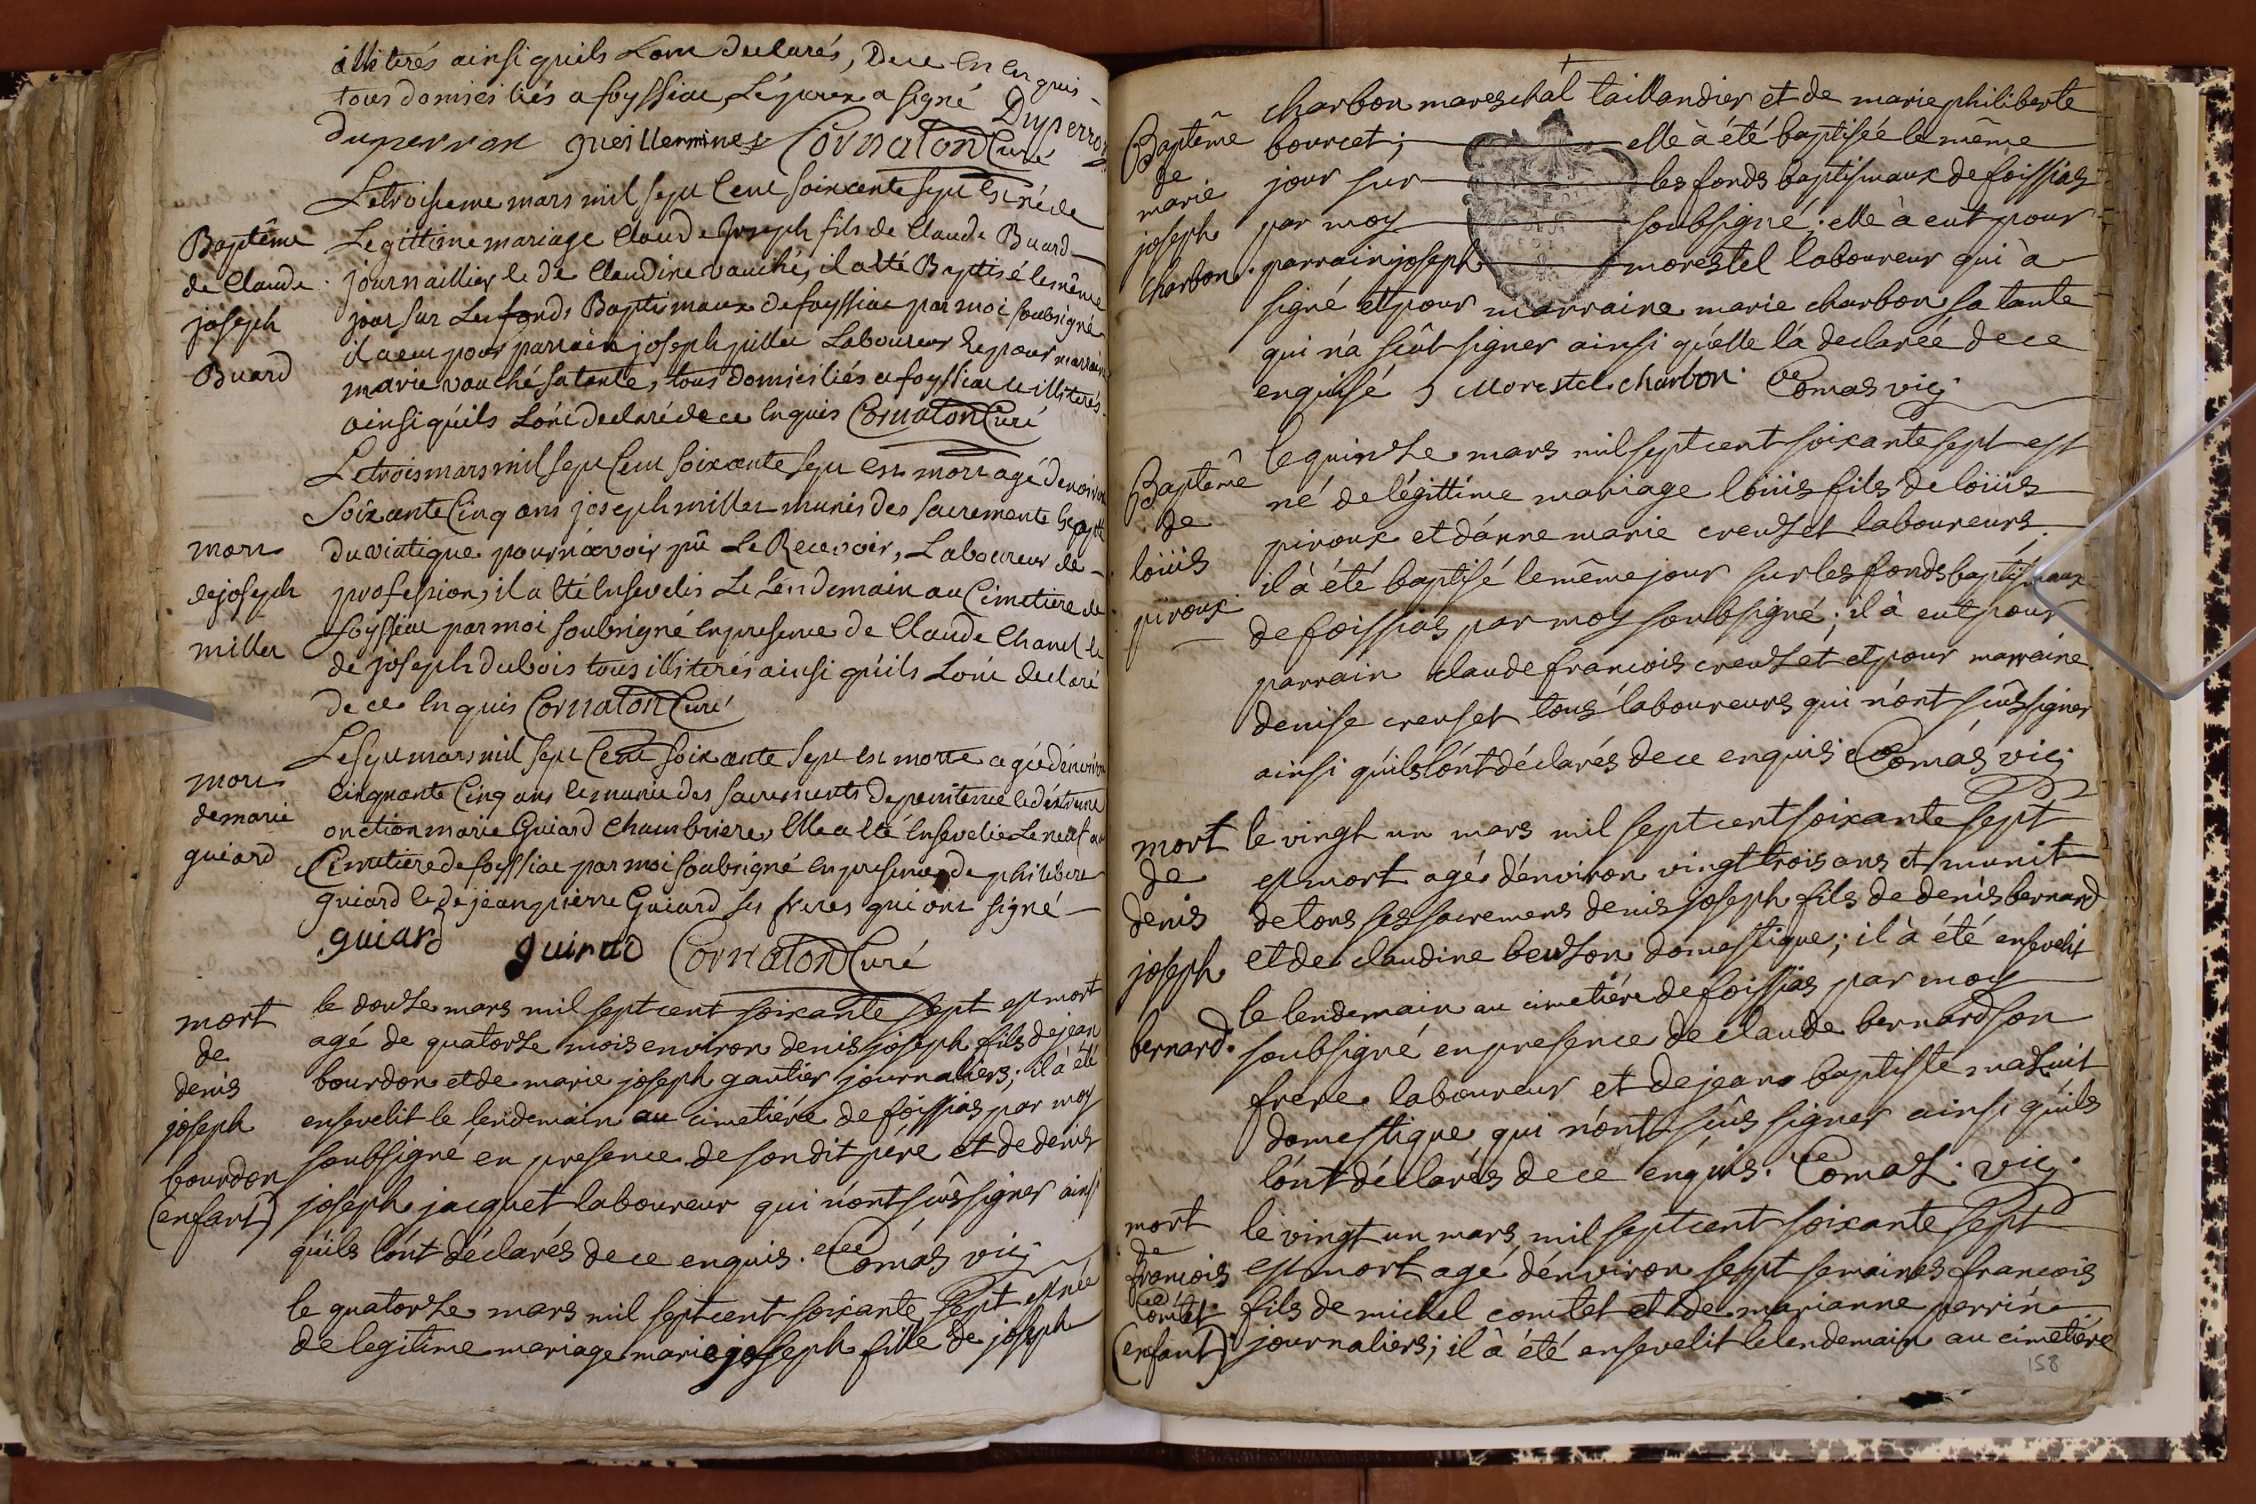 illiterés ainsi quils Lont declarés, De ce En Enquis
tous domiciliés a foyssiac, Lépoux a signé Duperron
duperron gueillermine Cornaton Curé
Baptême
de Claude
joseph
Buard
Le troisieme mars mil sept Cent soixante sept Est né de
Legittime mariage Claude Joseph fils de Claude Buard
journaillier & de Claudine vauché, il a Eté Baptisé le même
jour sur Les fonds Baptismaux de foyssiac par moi soubsigné
il a eu pour parrain joseph pillet Laboureur Et pour marraine
marie vauché sa tante, tous domiciliés a foyssiac & illiterés
ainsi qu'ils L'ont declaré de ce Enquis Cornaton Curé
mort
de joseph
millet
Le trois mars mil sept Cent soixante sept Est mort agé denviron
Soixante Cinq ans joseph millet munis des sacremente Excepté
du viatique pour n'avoir pû Le Recevoir, Laboureur de
profession, il a Eté Ensevelis Le Lendemain au Cimetiere de
foyssiac par moi soubsigné En presence de Claude Chanel &
de joseph dubois tous illiterés ainsi qu'ils L'ont declaré
de ce Enquis Cornaton Curé
mort
de marie
guiard
Le sept mars mil sept Cent soixante sept Est morte agée d'environ
Cinquante Cinq ans & munie des sacrements de penitence & d'extreme
onction marie Guiard Chambriere, Elle a Eté Ensevelie Le neuf au
Cimetiere de foyssiac par moi soubsigné En presence de philibert
guiard & de jean pierre Guiard ses freres qui ont signé
guiard guirad Cornaton Curé
mort
de
denis
joseph
bourdon
(enfant)
le douze mars mil sept cent soixante sept est mort
agé de quatorze mois environ denis joseph fils de jean
bourdon et de marie joseph gautier journaliers; il à été
ensevelit le lendemain au cimetiére de foissias par moy
soubsigné en presence de son dit pére et de denis
joseph jacquet laboureur qui n'ont sûs signer ainsi
qu'ils l'ont déclarés de ce enquis. Comas vic;
le quatorze mars mil sept cent soixante sept est née
de legitime mariage marie joseph fille de joseph
Baptême
de
marie
joseph
charbon.
charbon mareschal taillandier et de marie philiberte
bourcet; elle à été baptisée le même
jour sur les fonds baptismaux de foissias
par moy soubsigné; elle à eut pour
parrain joseph morestel laboureur qui à
signé et pour marraine marie charbon sa tante
qui n'a sçût signer ainsi qu'elle l'a declarée de ce
enquise J Morestel charbon. Comas vic;
Baptême
de
loüis
piroux
le quinze mars mil sept cent soixante sept est
né de légittime mariage loüis fils de loüis
piroux et d'anne marie creuzet laboureurs.
il à été baptisé le même jour sur les fonds baptismaux
de foissias par moy soubsigné; il à eut pour
parrain claude francois creuzet et pour marraine
denise creuset tous laboureurs qui n'ont sûs signer
ainsi qu'ils l'ont déclarés de ce enquis Comas vic;
mort
de
denis
joseph
bernard.
le vingt un mars mil sept cent soixante sept
est mort agé d'environ vingt trois ans et munit
de tous ses sacremens denis joseph fils de denis bernard
et de claudine beuzon domestique; il à été ensevelit
le lendemain au cimetiére de foissias par moy
soubsigné en presence de claude bernard son
frere laboureur et de jean baptiste mazuit
domestique qui n'ont sûs signer ainsi qu'ils
l'ont déclarés de ce enquis. Comas. vic;
mort
de
francois
comtet
(enfant)
le vingt un mars mil sept cent soixante sept
est mort agé d'environ sept semaines francois
fils de michel comtet et de marianne perrin
journaliers; il à été ensevelit le lendemain au cimetiére
158